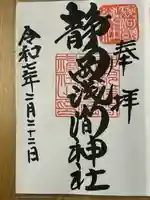 奉拝
静岡浅間神社
令和七年二月二十二日